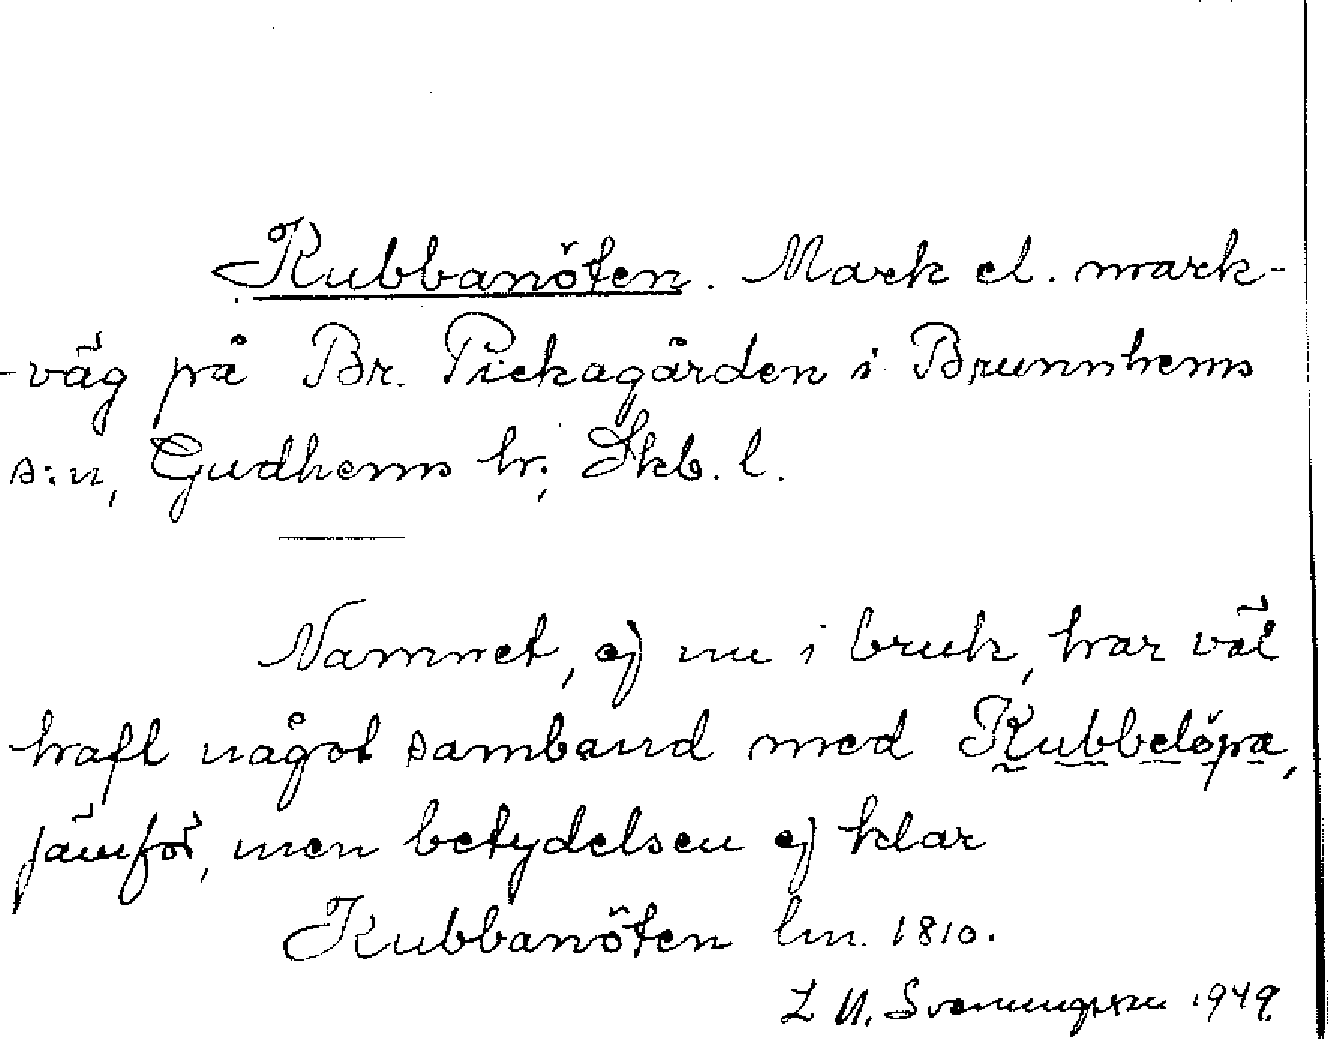 Kubbanöten. Mark el. mark-
-väg på Br. Pickagården i Brunnhems
s:n, Gudhems hr; Skb. l.
Namnet, ej nu i bruk, har väl
haft något samband med Kubbelöpa,
jämför, men betydelsen ej klar
Kubbanöten lm. 1810.
L N. Svenungsson 1949.